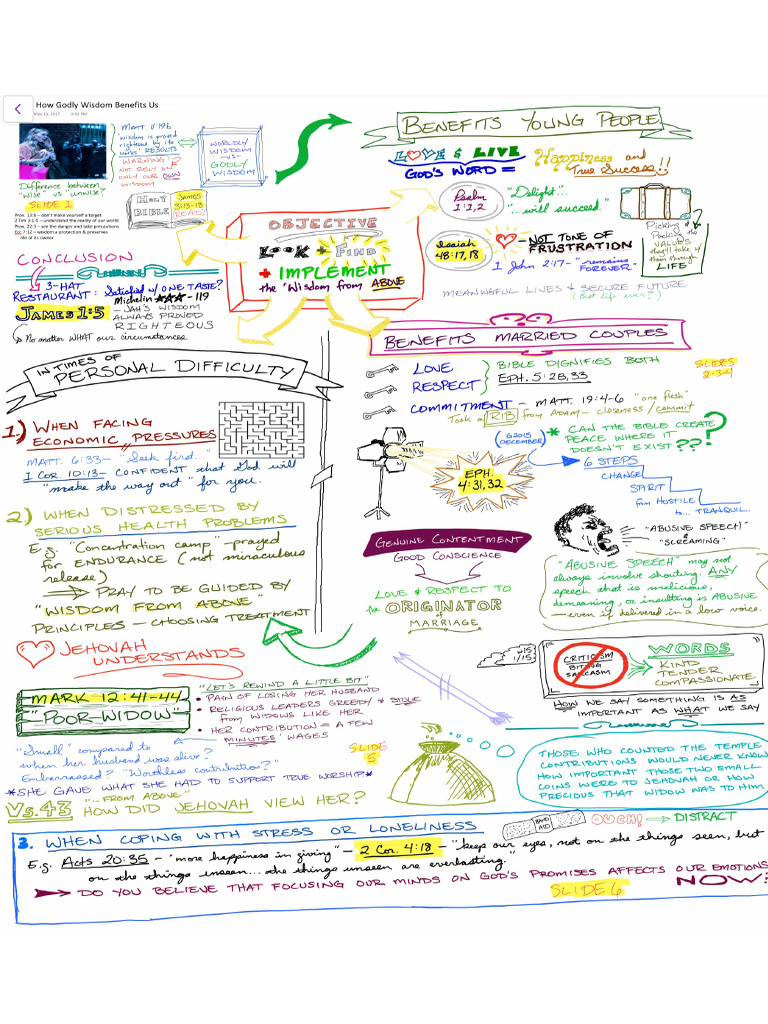 How Godly Wisdom Benefits Us
May 13, 2017 3:40 PM
MATT 11:19b
"wisdom is proved
righteous by its
works" RESULTS
WARNING?
NOT RELY ON
ONLY OUR OWN
WISDOM
WORLDLY
WISDOM
-VS-
GODLY
WISDOM
Difference between
"wise" vs "unwise?
SLIDE 1
Prov. 13:8 – don't make yourself a target
2 Tim 3:1-5 – understand the reality of our world
Prov. 22:3 – see the danger and take precautions
Ecc 7:12 – wisdom a protection & preserves
life of its owner
HOLY
BIBLE
JAMES
3:13-18
(READ)
OBJECTIVE
LOOK + FIND
+ IMPLEMENT
the "Wisdom from ABOVE
CONCLUSION
3-HAT
RESTAURANT: Satisfied w/ONE TASTE?
Michelin - 119
JAMES 1:5
- JAH'S WISDOM
ALWAYS PROVED
RIGHTEOUS
No matter WHAT our circumstances
BENEFITS YOUNG PEOPLE
LOVE & LIVE
GOD'S WORD =
Happiness and
True Success!!
Psalm
1:1,2
"Delight...
...will succeed."
Isaiah
48:17,18
NOT TONE OF
FRUSTRATION
1 John 2:17- "remains
FOREVER"
Picking &
Packing the
VALUES
they'll take
them through
LIFE
MEANINGFUL LIVES & SECURE FUTURE
(Best life ever?)
BENEFITS MARRIED COUPLES
LOVE
RESPECT
BIBLE DIGNIFIES BOTH
EPH. 5:28,33
SLIDES
2-3-4
COMMITMENT - MATT. 19:4-6 "one flesh"
Took a RIB from ADAM- closeness/commit
G2015
(DECEMBER)
* CAN THE BIBLE CREATE
PEACE WHERE IT
DOESN'T EXIST???
EPH.
4:31,32
6 STEPS
CHANGE
SPIRIT
from HOSTILE
to... TRANQUIL.
GENUINE CONTENTMENT
GOOD CONSCIENCE
LOVE & RESPECT TO
the ORIGINATOR
of MARRIAGE
"ABUSIVE SPEECH"
&
"SCREAMING"
"ABUSIVE SPEECH" may not
always involve shouting. ANY
speech that is malicious,
demeaning, or insulting is ABUSIVE
— even if delivered in a low voice.
w15
1/15
CRITICISM
BITING
SARCASM
WORDS
KIND
TENDER
COMPASSIONATE
HOW WE SAY SOMETHING IS AS
IMPORTANT AS WHAT WE SAY
IN TIMES OF
PERSONAL DIFFICULTY
1) WHEN FACING
ECONOMIC PRESSURES
MATT. 6:33- "Seek first..."
1 COR. 10:13- CONFIDENT that God will
"make the way out" for you.
2) WHEN DISTRESSED BY
SERIOUS HEALTH PROBLEMS
E.g. "Concentration camp" -prayed
for ENDURANCE (not miraculous
release)
PRAY TO BE GUIDED BY
"WISDOM FROM ABOVE"
PRINCIPLES - CHOOSING TREATMENT
JEHOVAH
UNDERSTANDS
MARK 12:41-44
"POOR-WIDOW"
"LET'S REWIND A LITTLE BIT"
• PAIN OF LOSING HER HUSBAND
• RELIGIOUS LEADERS GREEDY & STOLE
from WIDOWS LIKE HER
• HER CONTRIBUTION = A FEW
MINUTES' WAGES
"Small" compared to
when her husband was alive?
Embarrassed? "Worthless contribution?"
SLIDE
5
*SHE GAVE WHAT SHE HAD TO SUPPORT TRUE WORSHIP*
"...FROM ABOVE"
Vs.43 HOW DID JEHOVAH VIEW HER?
THOSE WHO COUNTED THE TEMPLE
CONTRIBUTIONS WOULD NEVER KNOW
HOW IMPORTANT THOSE TWO SMALL
COINS WERE TO JEHOVAH OR HOW
PRECIOUS THAT WIDOW WAS TO HIM
3. WHEN COPING WITH STRESS OR LONELINESS
BAND
AID
OUCH! DISTRACT
E.g. Acts 20:35 - "more happiness in giving" - 2 Cor. 4:18 - "keep our eyes, not on the things seen, but
on the things unseen... the things unseen are everlasting."
DO YOU BELIEVE THAT FOCUSING OUR MINDS ON GOD'S PROMISES AFFECTS OUR EMOTIONS
NOW?
SLIDE 6